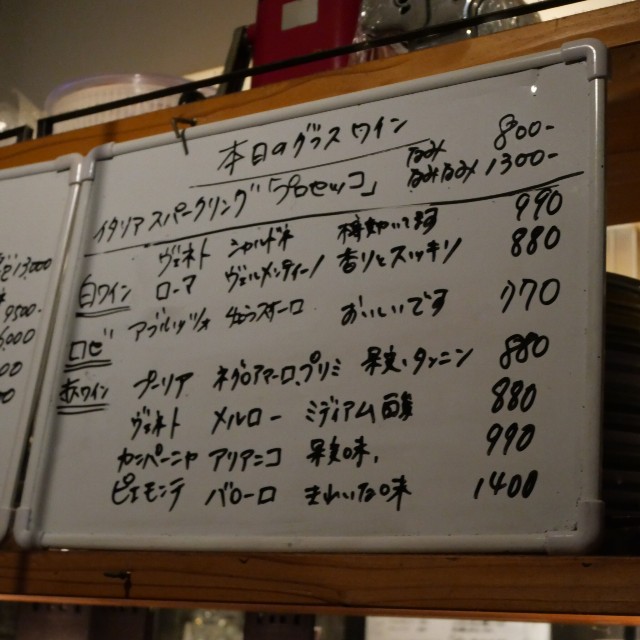 000
9500-
6000
本日のグラスワイン
イタリアスパークリング「プロセッコ」 なみ 800-
なみなみ 1300-
ヴェネト シャルドネ 990
白ワイン ローマ ヴェルメンティーノ 香りとスッキリ 880
ロゼ アブルッツォ チェラスオーロ おいしいです 770
赤ワイン プーリア ネグロアマーロ、プリミ 果実、タンニン 880
ヴェネト メルロー ミディアム 880
カンパーニャ アリアニコ 果実味、 990
ピエモンテ バローロ きれいな味 1400